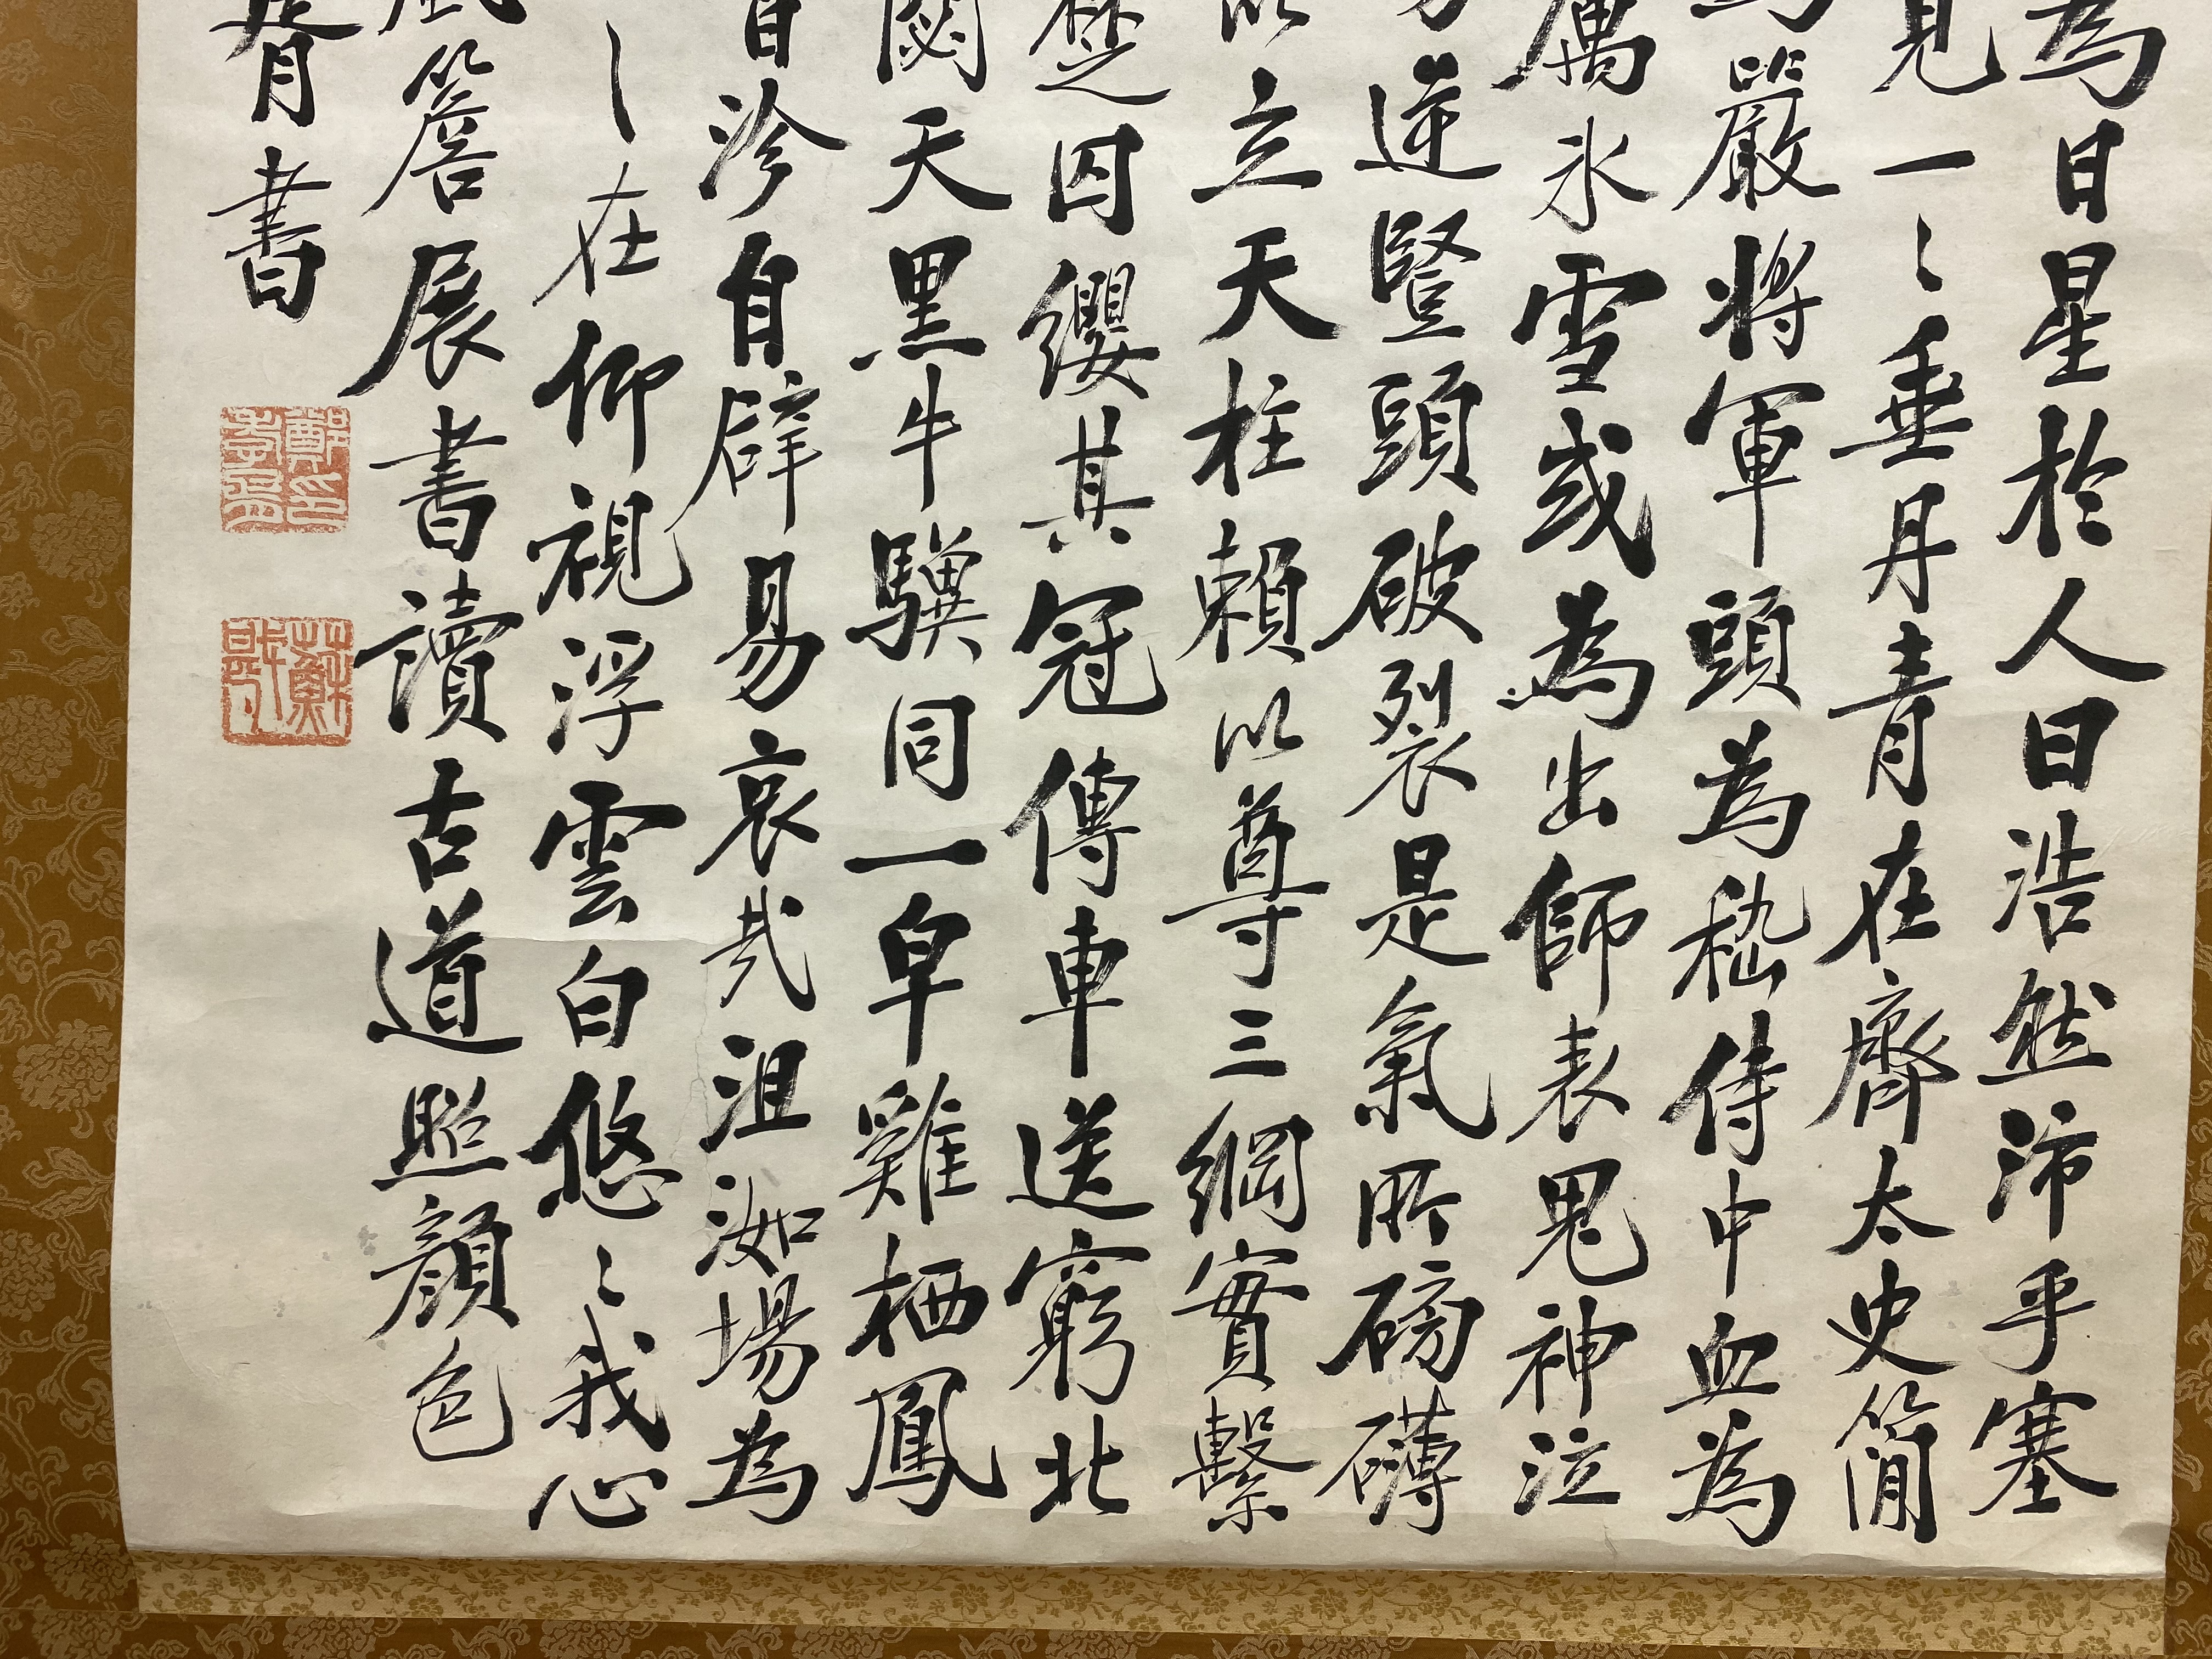 為日星於人曰浩然沛乎塞
見一〻垂丹青在齊太史簡
為嚴將軍頭為嵇侍中血為
厲冰雪或為出師表鬼神泣
逆豎頭破裂是氣所磅礴
以立天柱賴以尊三綱實繫
楚囚纓其冠傳車送窮北
閟天黑牛驥同一皁雞栖鳳
百沴自辟易哀哉沮洳場為
〻在仰視浮雲白悠〻我心
風簷展書讀古道照顏色
胥書
鄭印孝胥
蘇戡